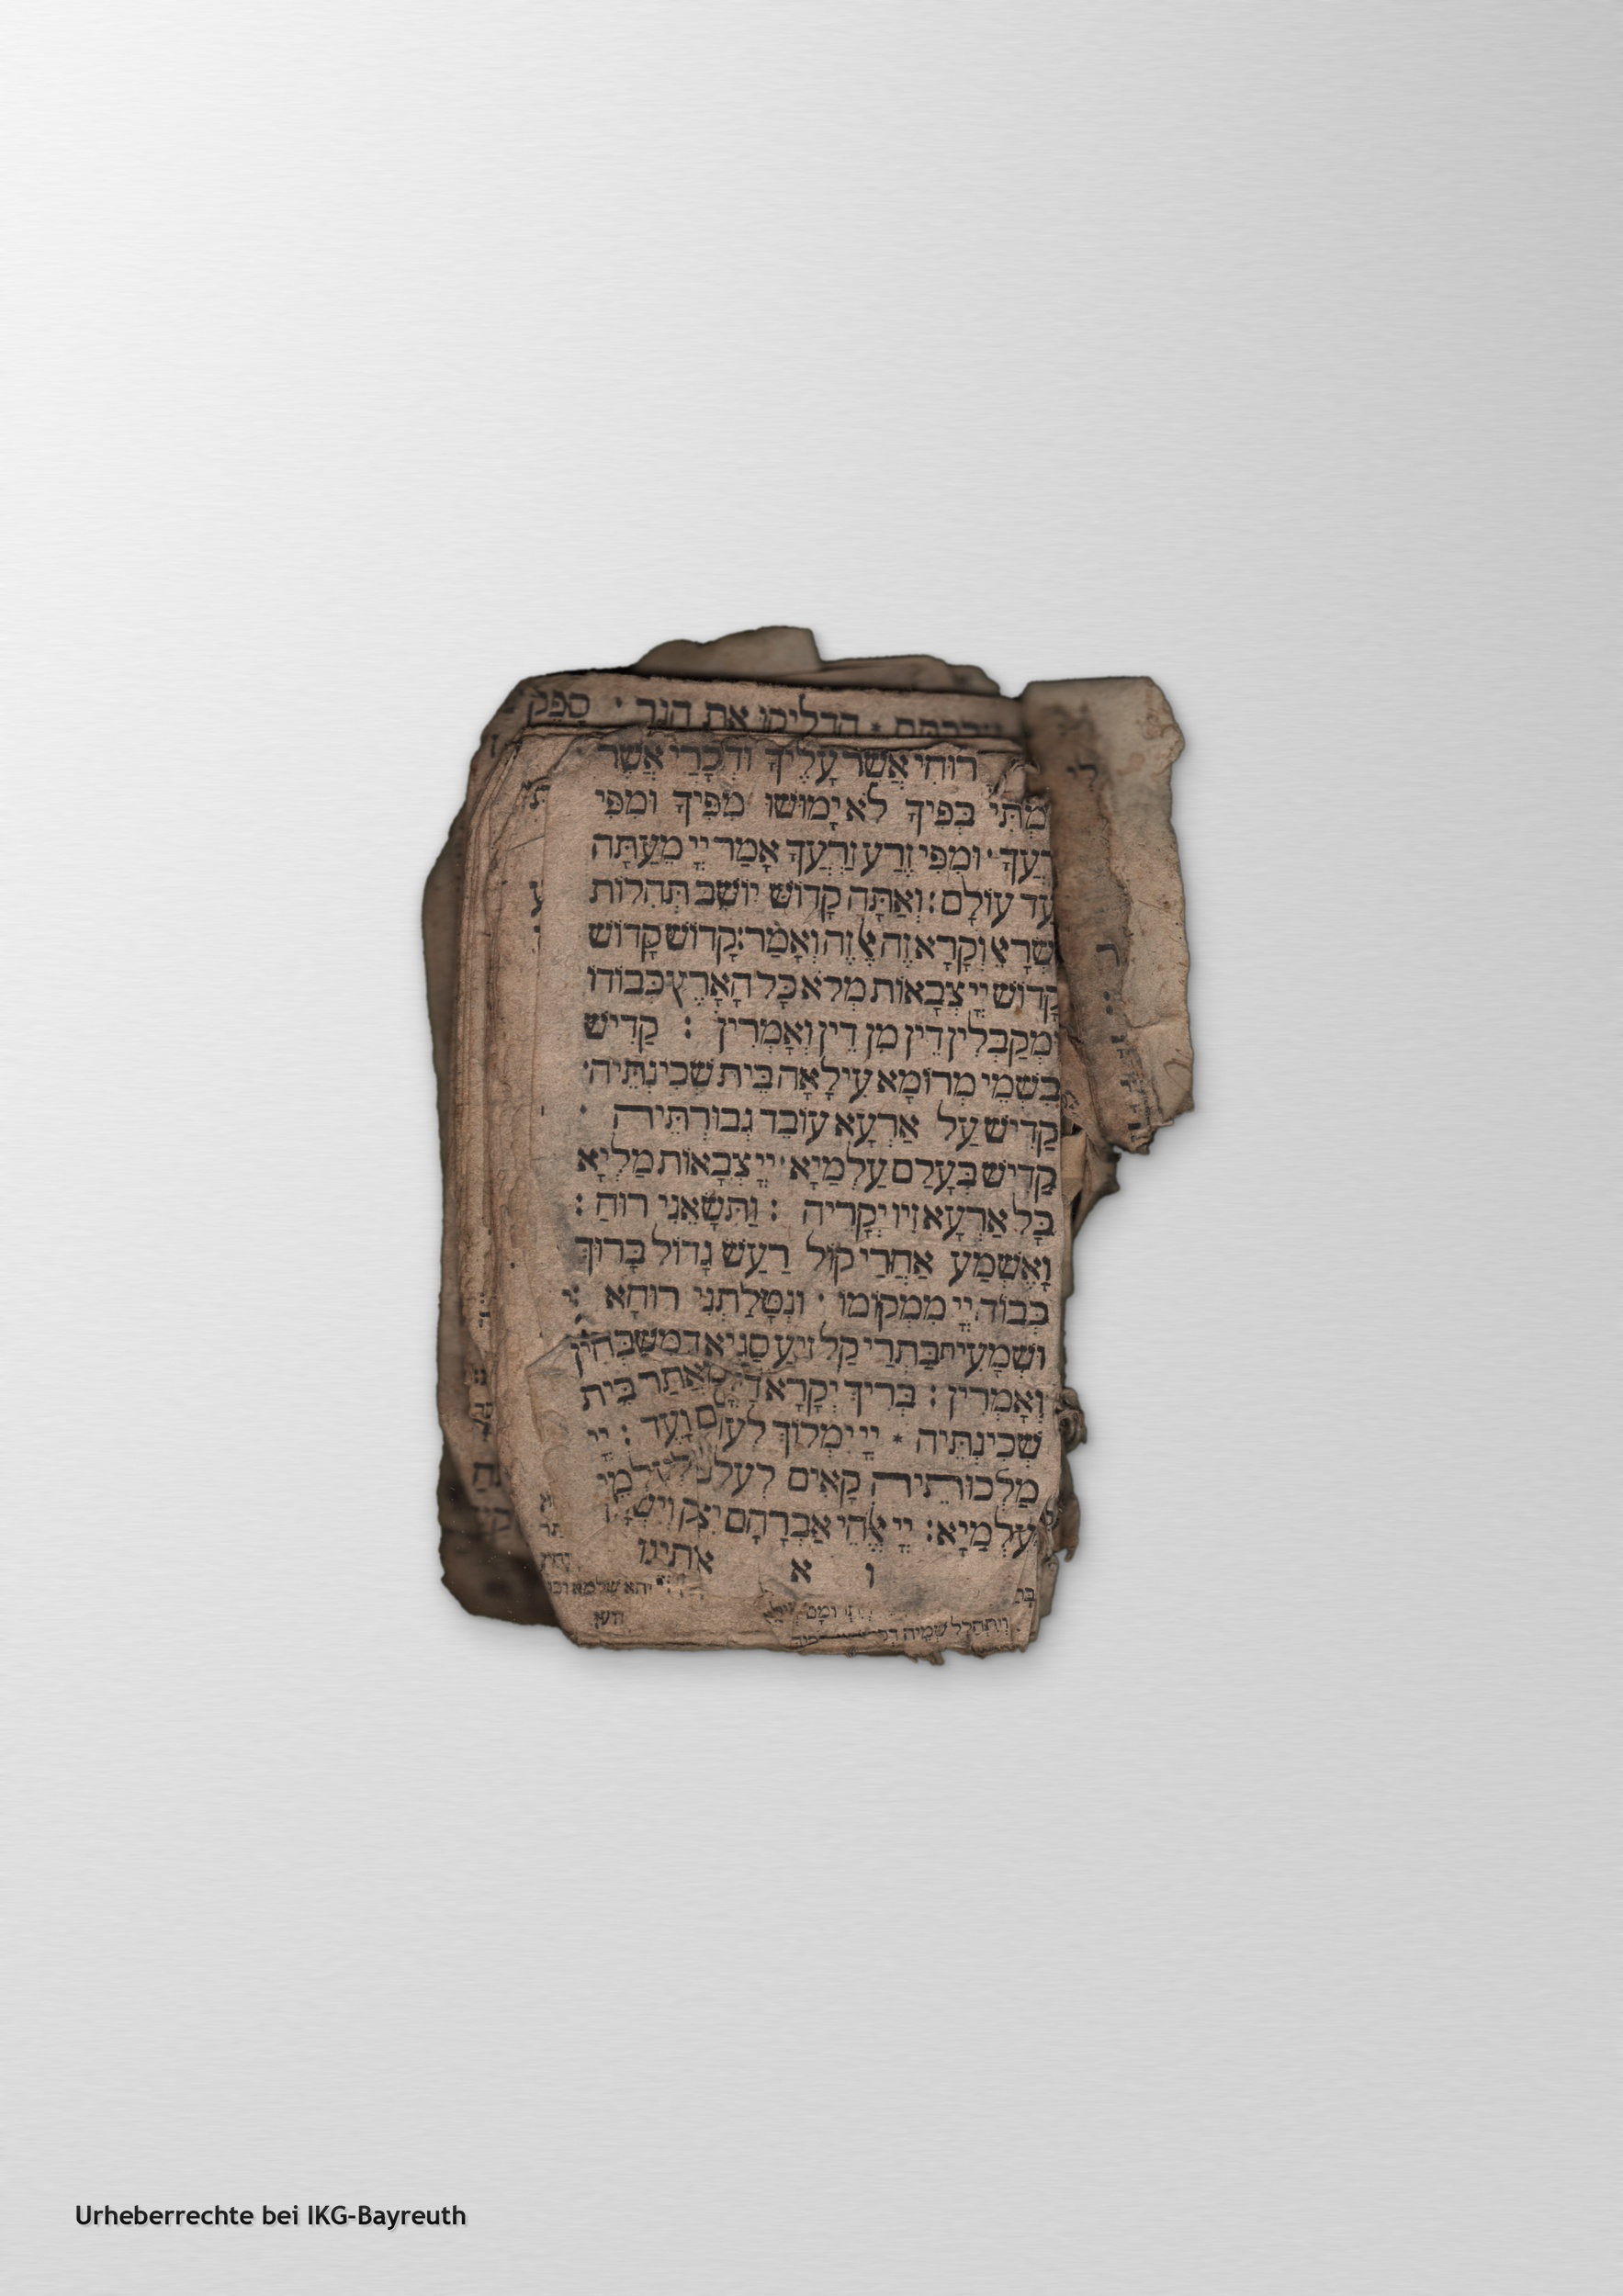 הדליקו את הנר · ספק
רוּחִי אֲשֶׁר עָלֶיךָ וּדְבָרַי אֲשֶׁר
מְתִּי בְּפִיךָ לֹא יָמוּשׁוּ מִפִּיךָ וּמִפִּי
רְעֲךָ · וּמִפִּי זֶרַע זַרְעֲךָ אָמַר יְיָ מֵעַתָּה
עַד עוֹלָם : וְאַתָּה קָדוֹשׁ יוֹשֵׁב תְּהִלּוֹת
שְׂרָאֵל וְקָרָא זֶה אֶל זֶה וְאָמַר : קָדוֹשׁ קָדוֹשׁ
קָדוֹשׁ יְיָ צְבָאוֹת מְלֹא כָל הָאָרֶץ כְּבוֹדוֹ
וּמְקַבְּלִין דֵין מִן דֵין וְאָמְרִין : קַדִּישׁ
בִּשְׁמֵי מְרוֹמָא עִילָאָה בֵּית שְׁכִינְתֵּיהּ ·
קַדִּישׁ עַל אַרְעָא עוֹבַד גְּבוּרְתֵּיהּ ·
קַדִּישׁ בְּעָלַם עַלְמַיָא · יְיָ צְבָאוֹת מַלְיָא
כָּל אַרְעָא זִיו יְקָרֵיהּ : וַתִּשָּׂאֵנִי רוּחַ :
וָאֶשְׁמַע אַחֲרַי קוֹל רַעַשׁ גָּדוֹל בָּרוּךְ
כְּבוֹד יְיָ מִמְּקוֹמוֹ · וּנְטָלַתְנִי רוּחָא
וּשְׁמָעִית בַּתְרַי קָל זִיעַ סַגִּיא דִמְשַׁבְּחִין
וְאָמְרִין : בְּרִיךְ יְקָרָא דַיְיָ מֵאֲתַר בֵּית
שְׁכִינְתֵּיהּ * יְיָ יִמְלוֹךְ לְעוֹלָם וָעֶד : יְיָ
מַלְכוּתֵיהּ קָאִים לְעָלַם לְעָלְמֵי
עָלְמַיָא : יְיָ אֱלֹהֵי אַבְרָהָם יִצְחָק וְיִשְׂ
ו א אתינו
יהא שלמא
וְיִתְהַלֵּל שְׁמֵיהּ
Urheberrechte bei IKG-Bayreuth